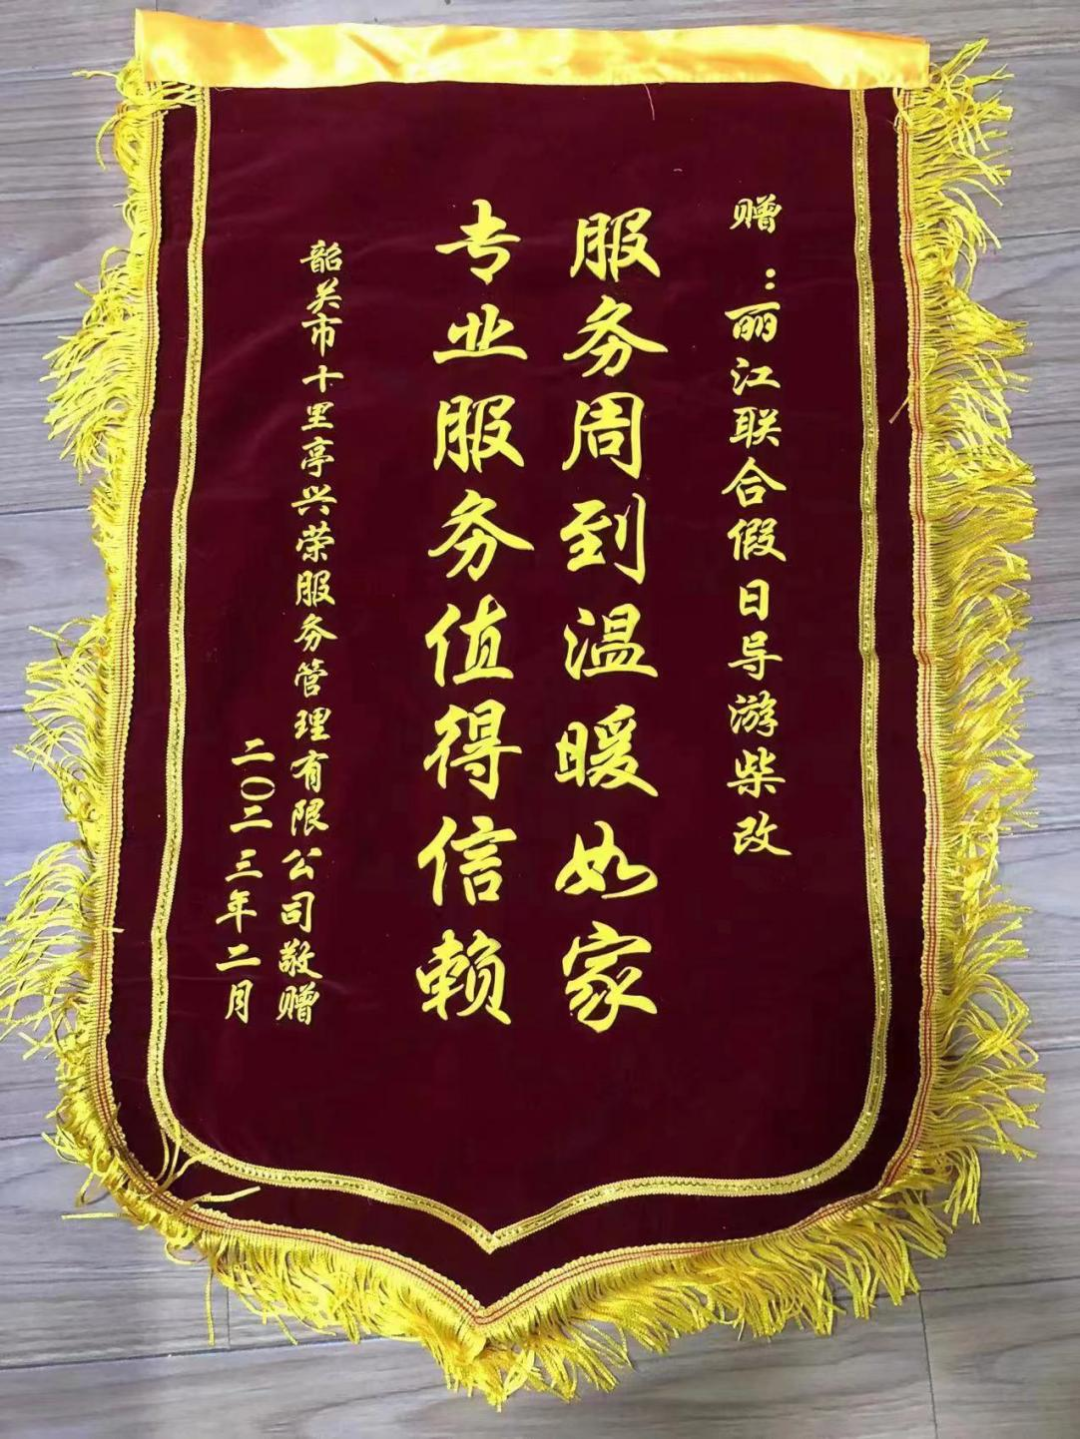 赠：丽江联合假日导游柴改
服务周到温暖如家
专业服务值得信赖
韶关市十里亭兴荣服务管理有限公司敬赠
二〇二三年二月